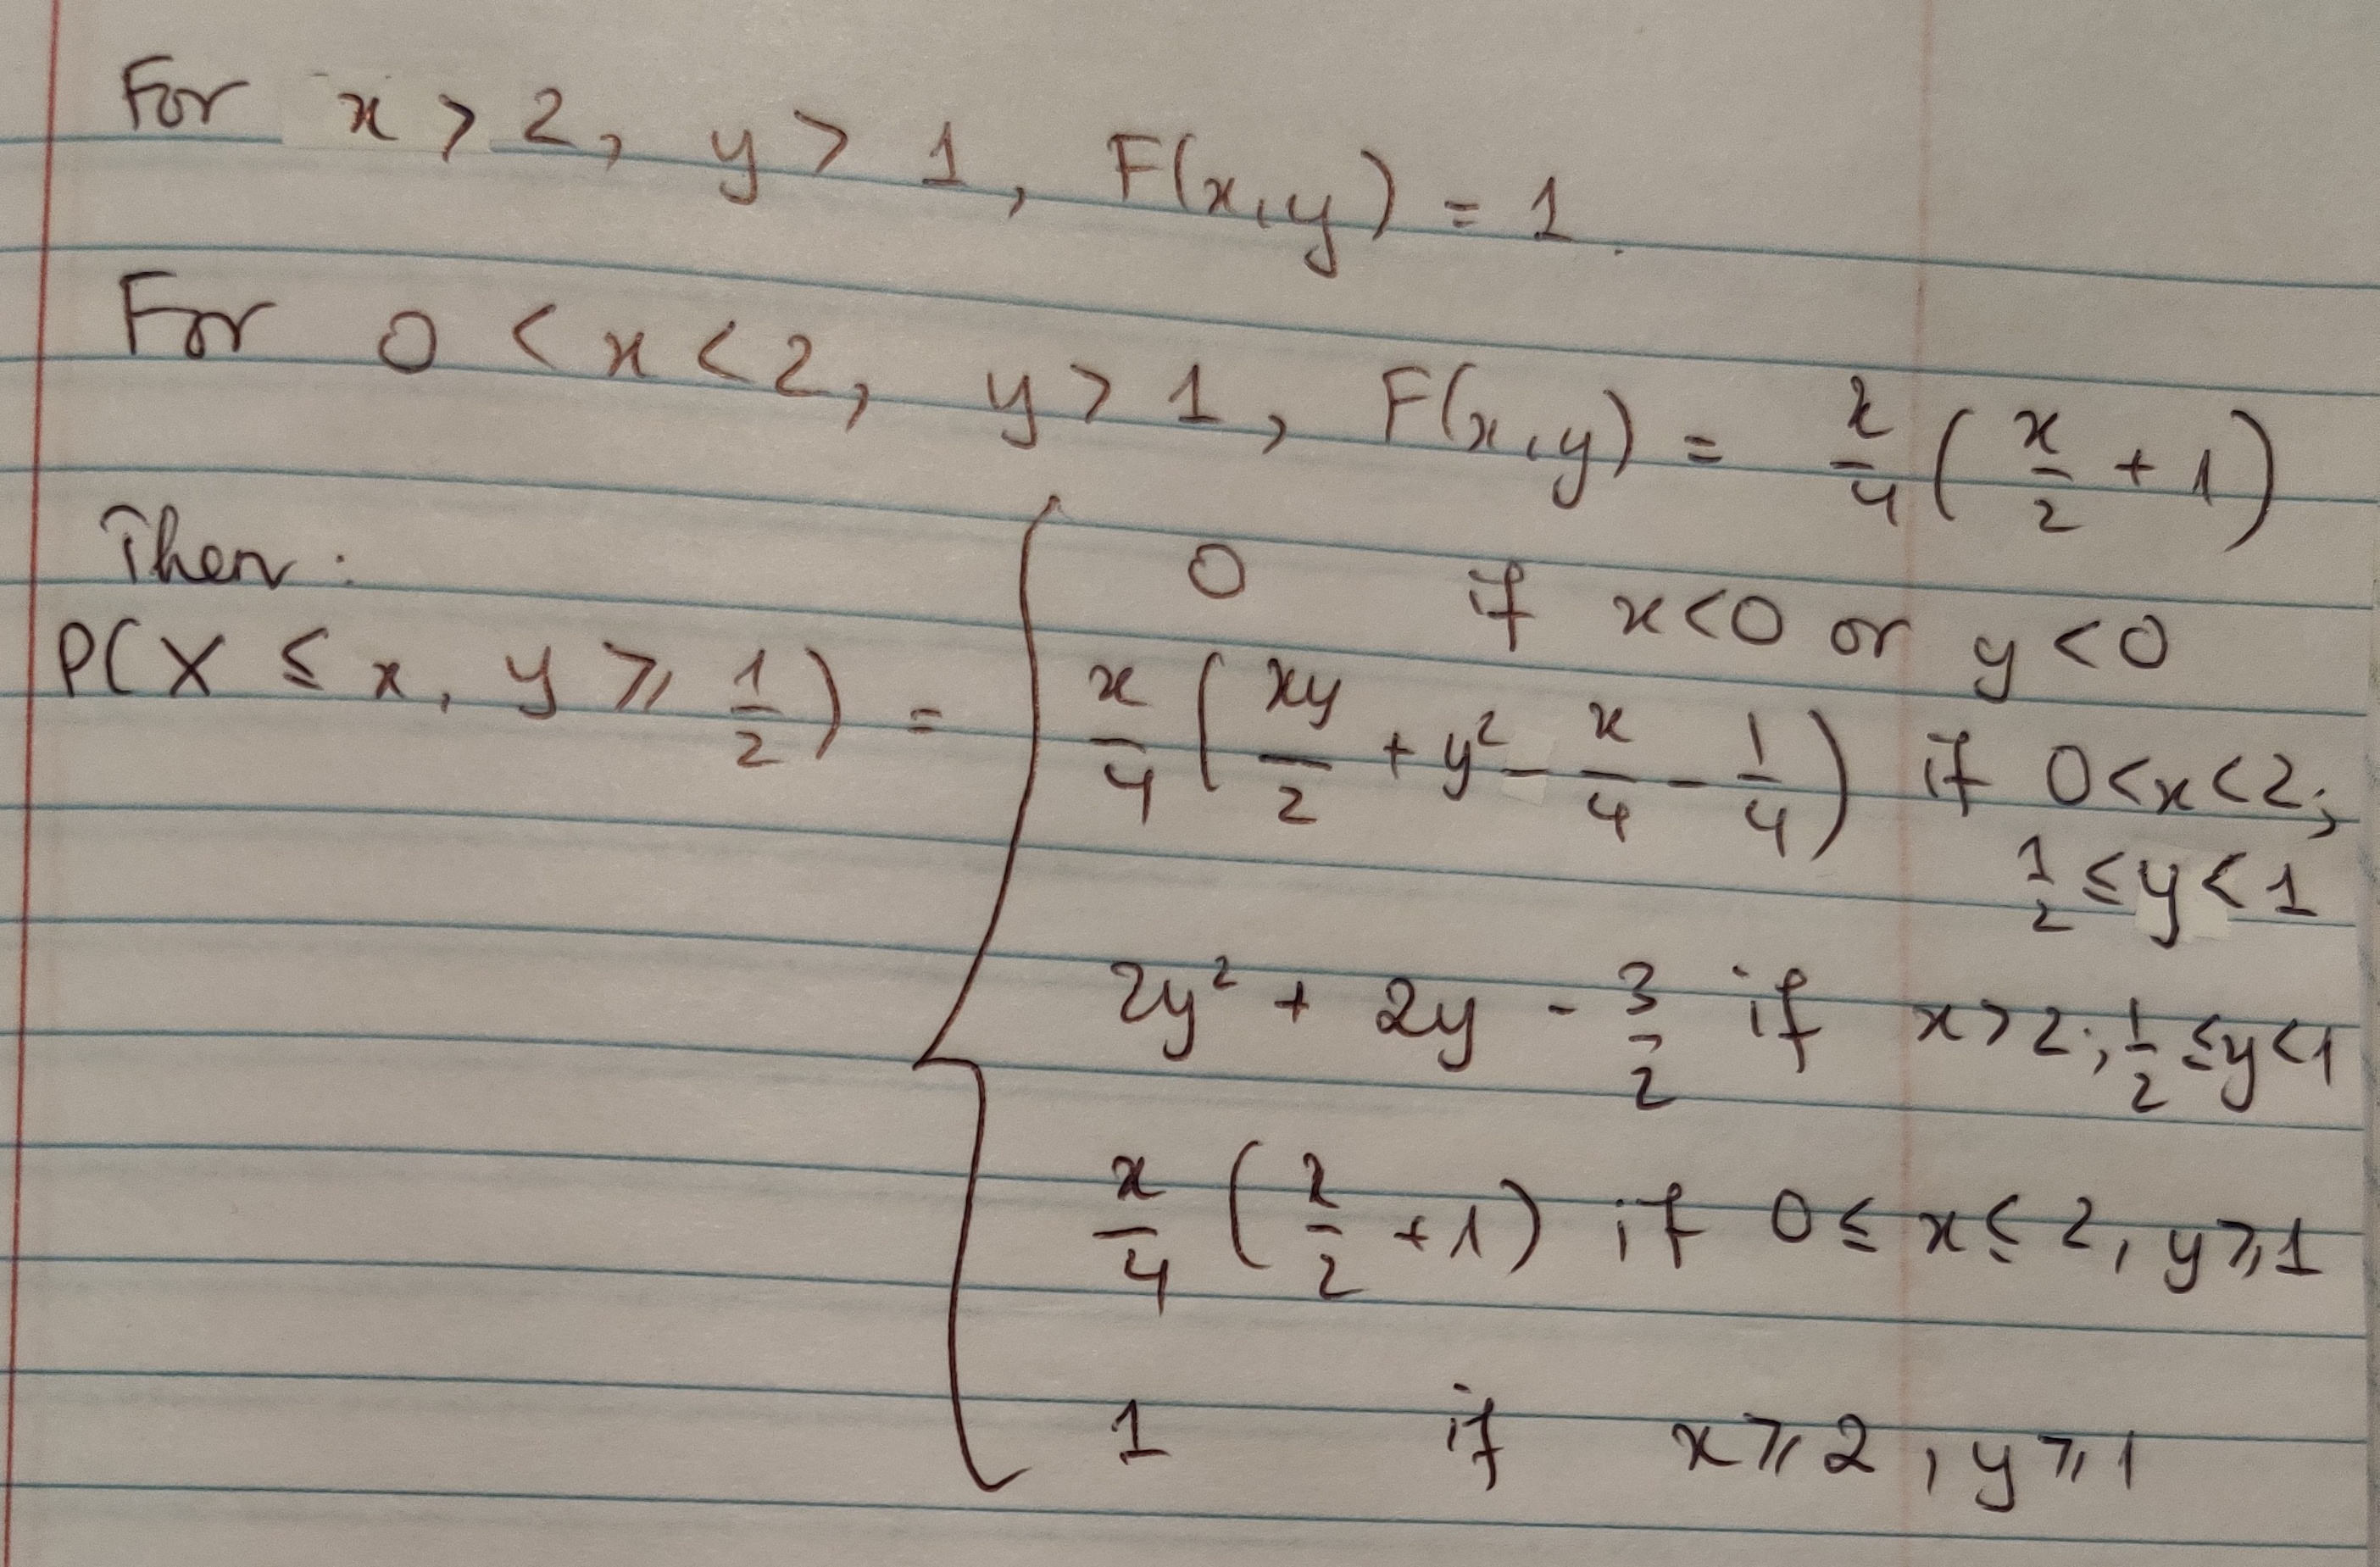 For x > 2, y > 1, F(x,y) = 1.
For 0 < x < 2, y > 1, F(x,y) = x/4 ( x/2 + 1)
Then:
P(X ≤ x, y ≥ 1/2) = { 0 if x<0 or y<0
x/4 ( xy/2 + y² - x/4 - 1/4 ) if 0<x<2;
1/2 ≤ y < 1
2y² + 2y - 3/2 if x>2; 1/2 ≤ y<1
x/4 ( x/2 + 1) if 0 ≤ x ≤ 2, y ≥ 1
1 if x ≥ 2, y ≥ 1